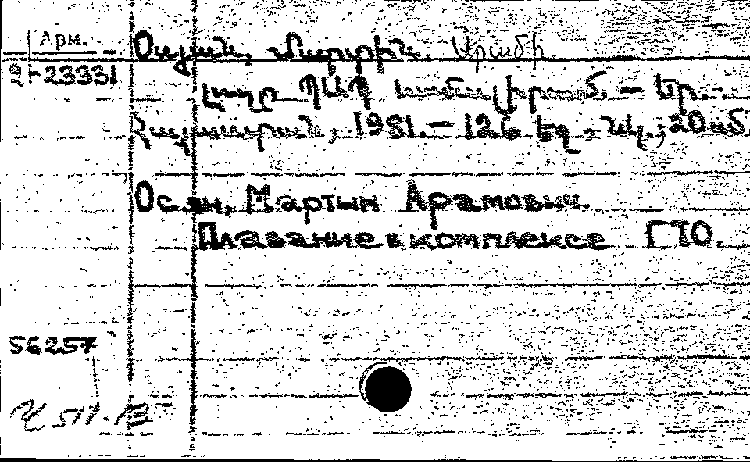 Арм.
Օսյան, Մարտին Արամի
9-23331
լողը ՊԱՊ համալիրում. — Եր.-
Հայաստան, 1981. — 126 էջ, նկ.; 20 սմ.
Осян, Мартын Арамович.
Плавание в комплексе ГТО.
56257